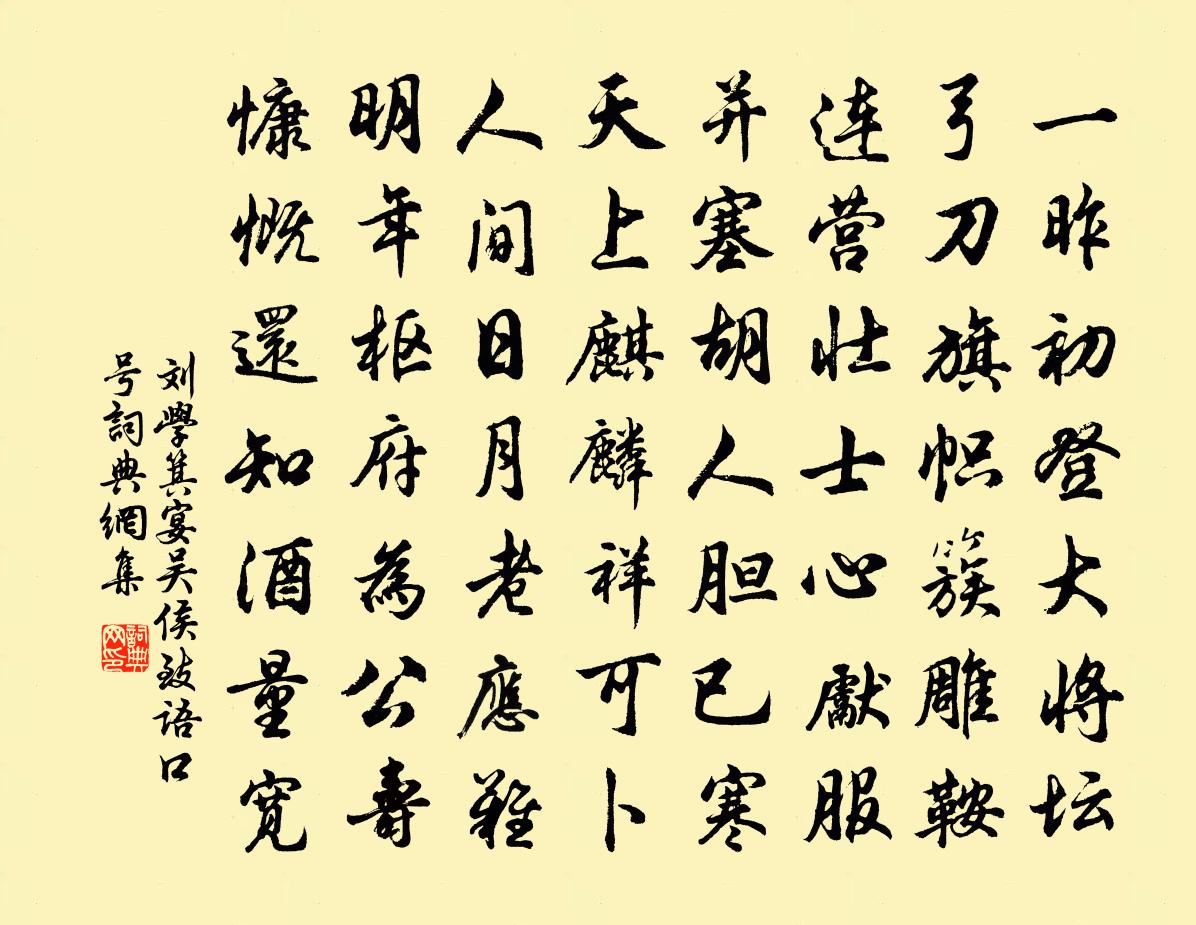 一昨初登大将坛
弓刀旗帜簇雕鞍
连营壮士心献服
并塞胡人胆已寒
天上麒麟祥可卜
人间日月老应难
明年枢府为公寿
慷慨還知酒量宽
刘學箕宴吴侯致语口
号詞典網集
詞典
网印